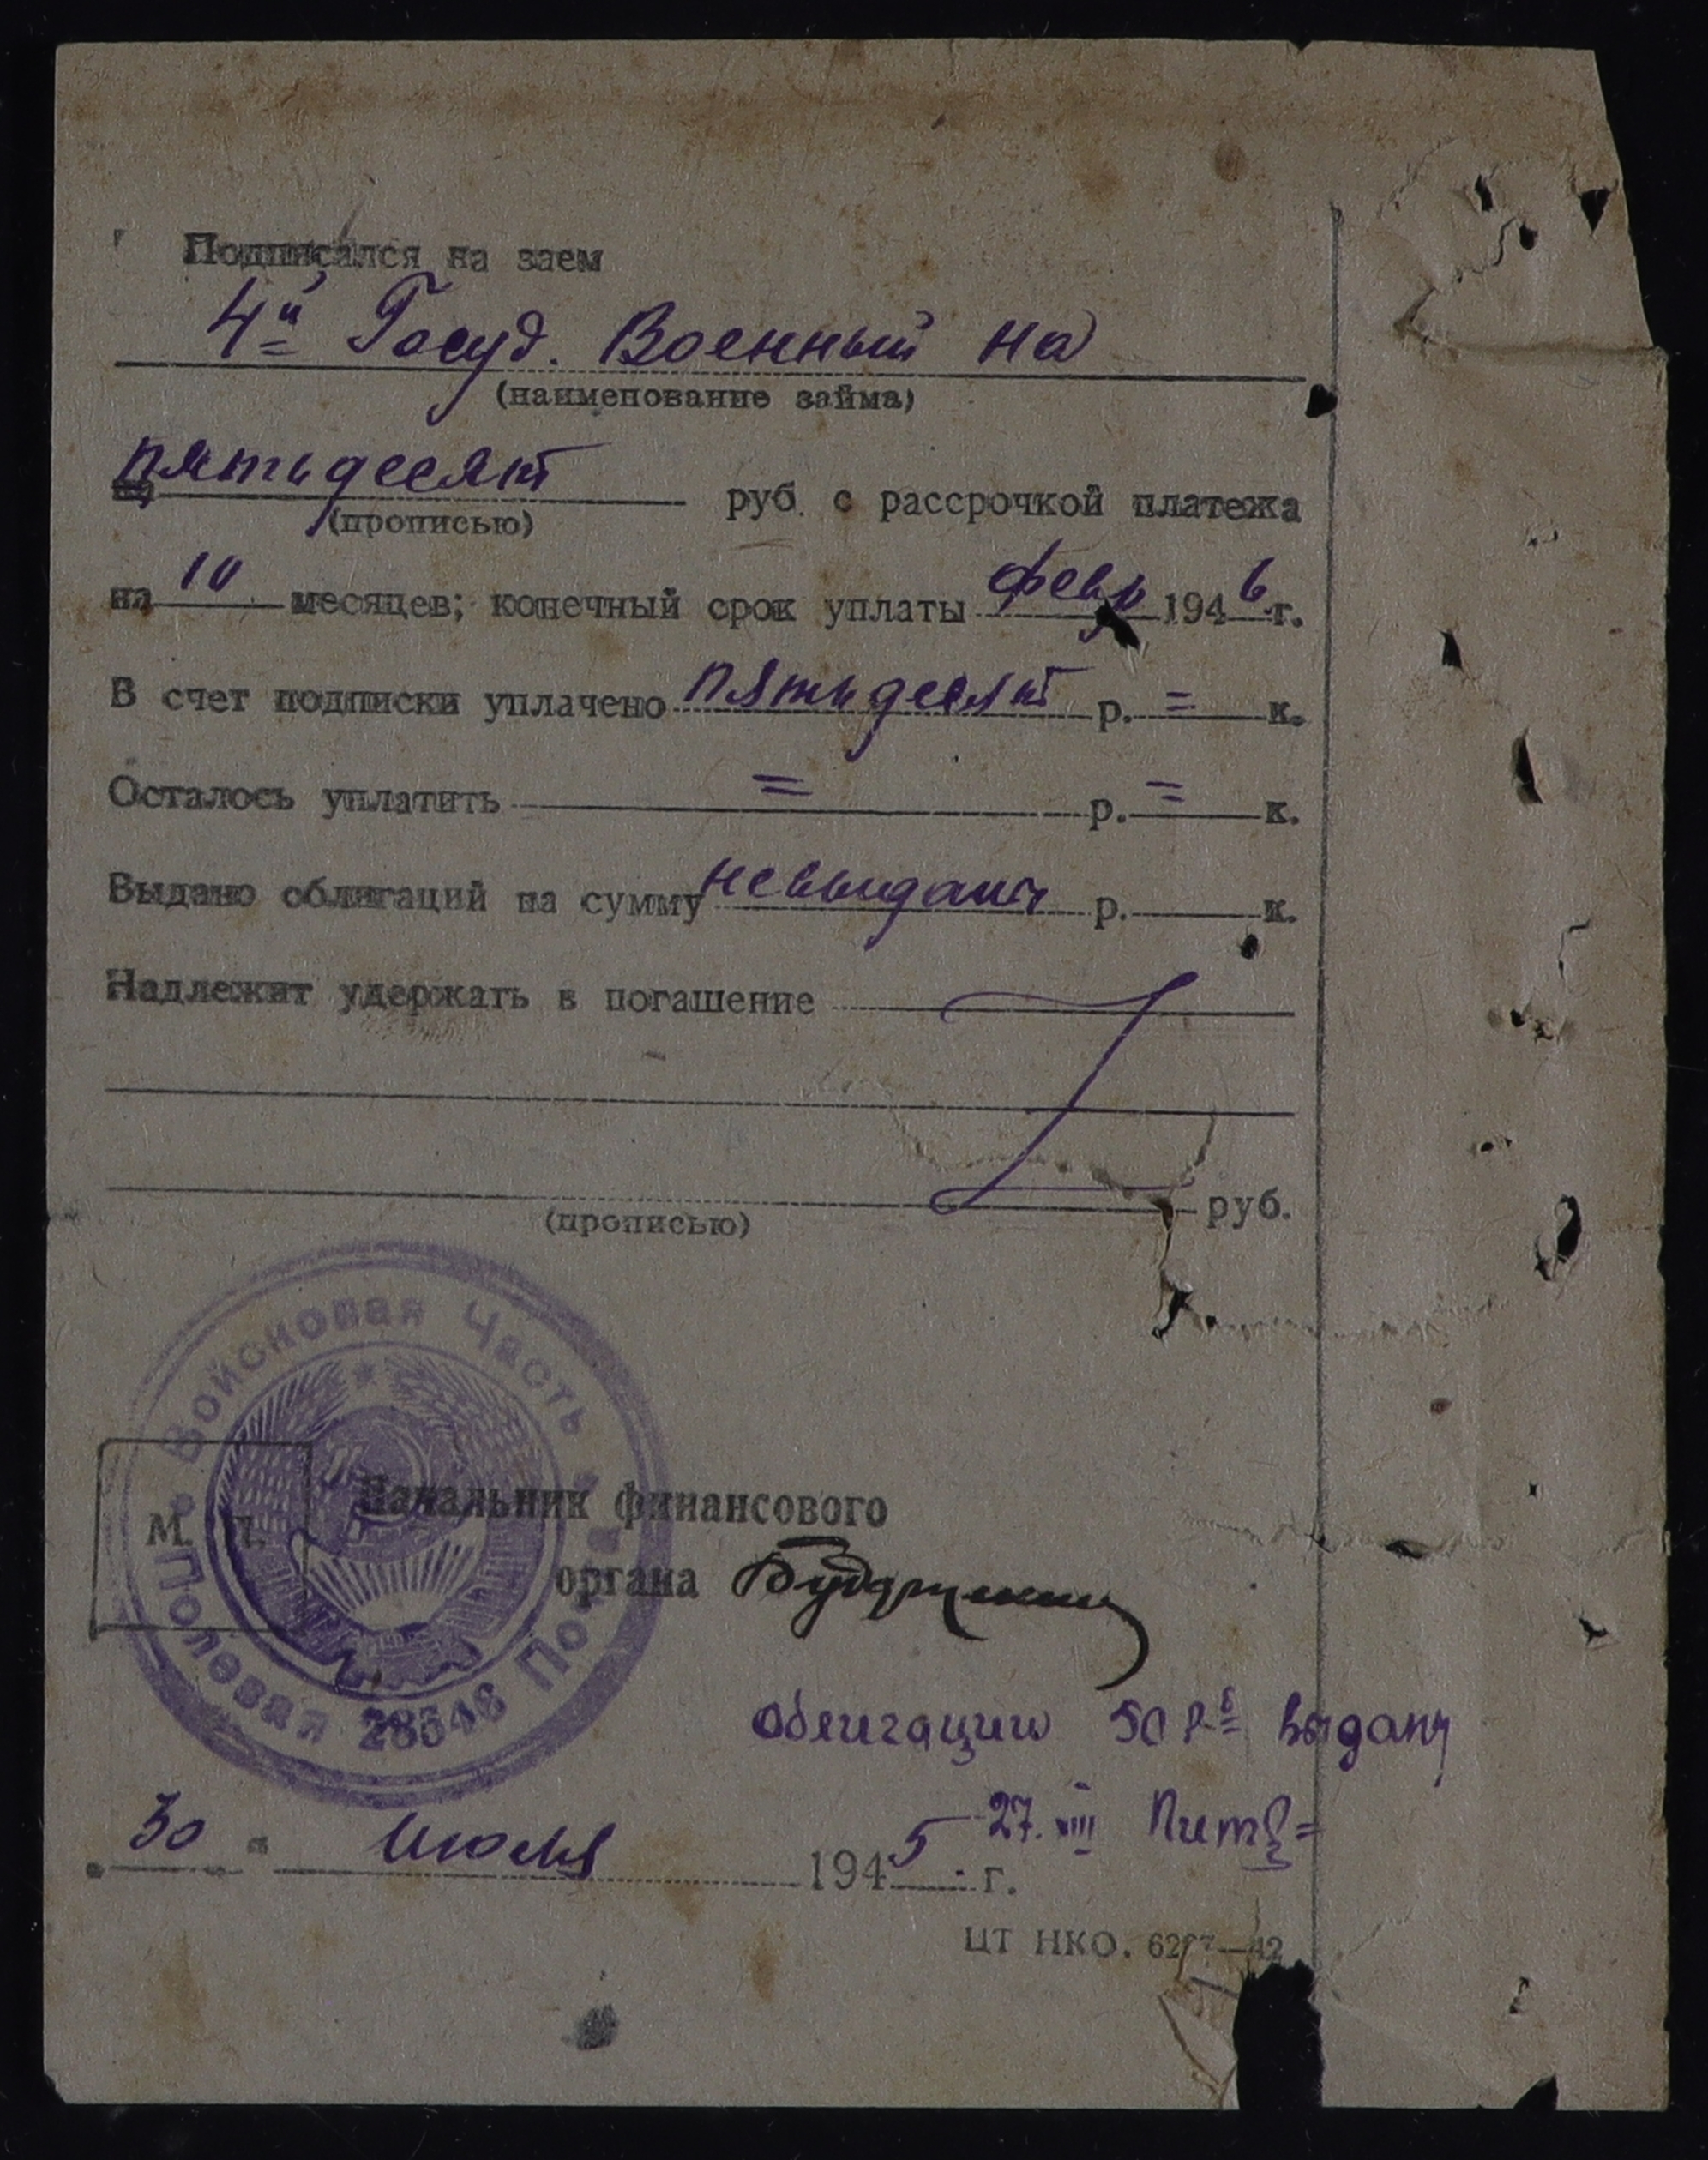 Подписался на заем
4й Госуд. Военный на
(наименование займа)
на пятьдесят руб. с рассрочкой платежа
(прописью)
на 10 месяцев; конечный срок уплаты февр 1946 г.
В счет подписки уплачено пятьдесят р. = к.
Осталось уплатить = р. = к.
Выдано облигаций на сумму невыдано р. к.
Надлежит удержать в погашение
руб.
(прописью)
Войсковая Часть
Полевая Почта
28546
М. П.
Начальник финансового
органа
Облигацию 50 рб выдану
30 " июля 1945 г.
27.VIII
ЦТ НКО.